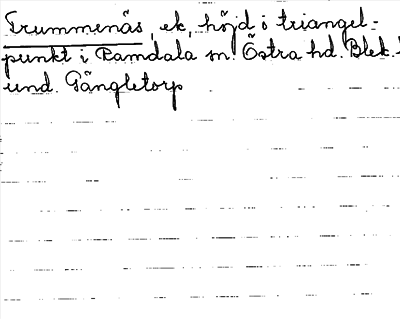 Trummenäs, ek, höjd o triangel-
punkt i Ramdala sn. Östra hd. Blek.
und. Gängletorp